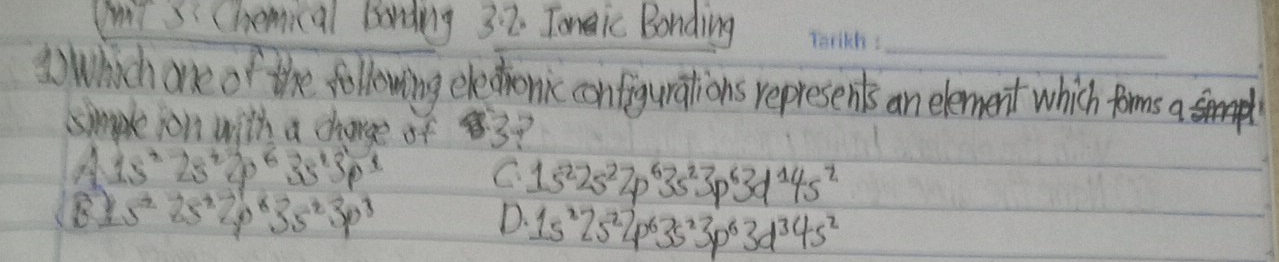 Unit 3: Chemical Bonding 3.2. Ionic Bonding
Tarikh :
1) Which one of the following electronic configurations represents an element which forms a
simple ion with a charge of 3?
A. 1s² 2s² 2p⁶ 3s² 3p¹
C. 1s²2s²2p⁶3s²3p⁶3d¹4s²
B. 1s² 2s² 2p⁶ 3s² 3p³
D. 1s²2s²2p⁶3s²3p⁶3d³4s²